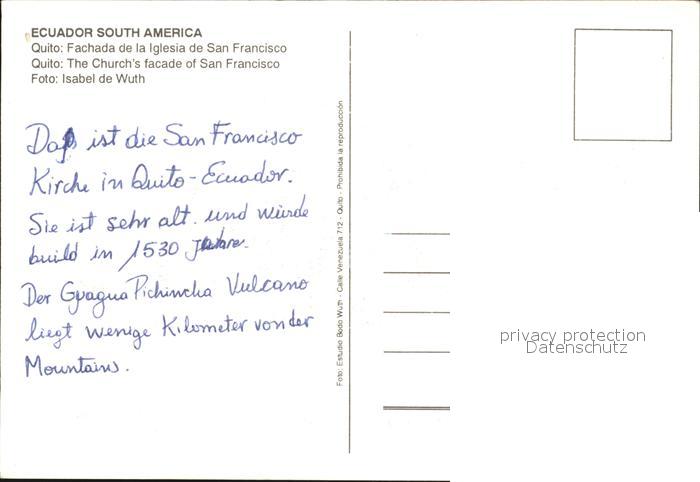 ECUADOR SOUTH AMERICA
Quito: Fachada de la Iglesia de San Francisco
Quito: The Church's facade of San Francisco
Foto: Isabel de Wuth
Daß ist die San Francisco
Kirche in Quito-Ecuador.
Sie ist sehr alt. und würde
build in 1530 Jahre.
Der Guagua Pichincha Vulcano
liegt wenige Kilometer von der
Mountains.
Foto: Estudio Bodo Wuth - Calle Venezuela 712 - Quito - Prohibida la reproducción
privacy protection
Datenschutz